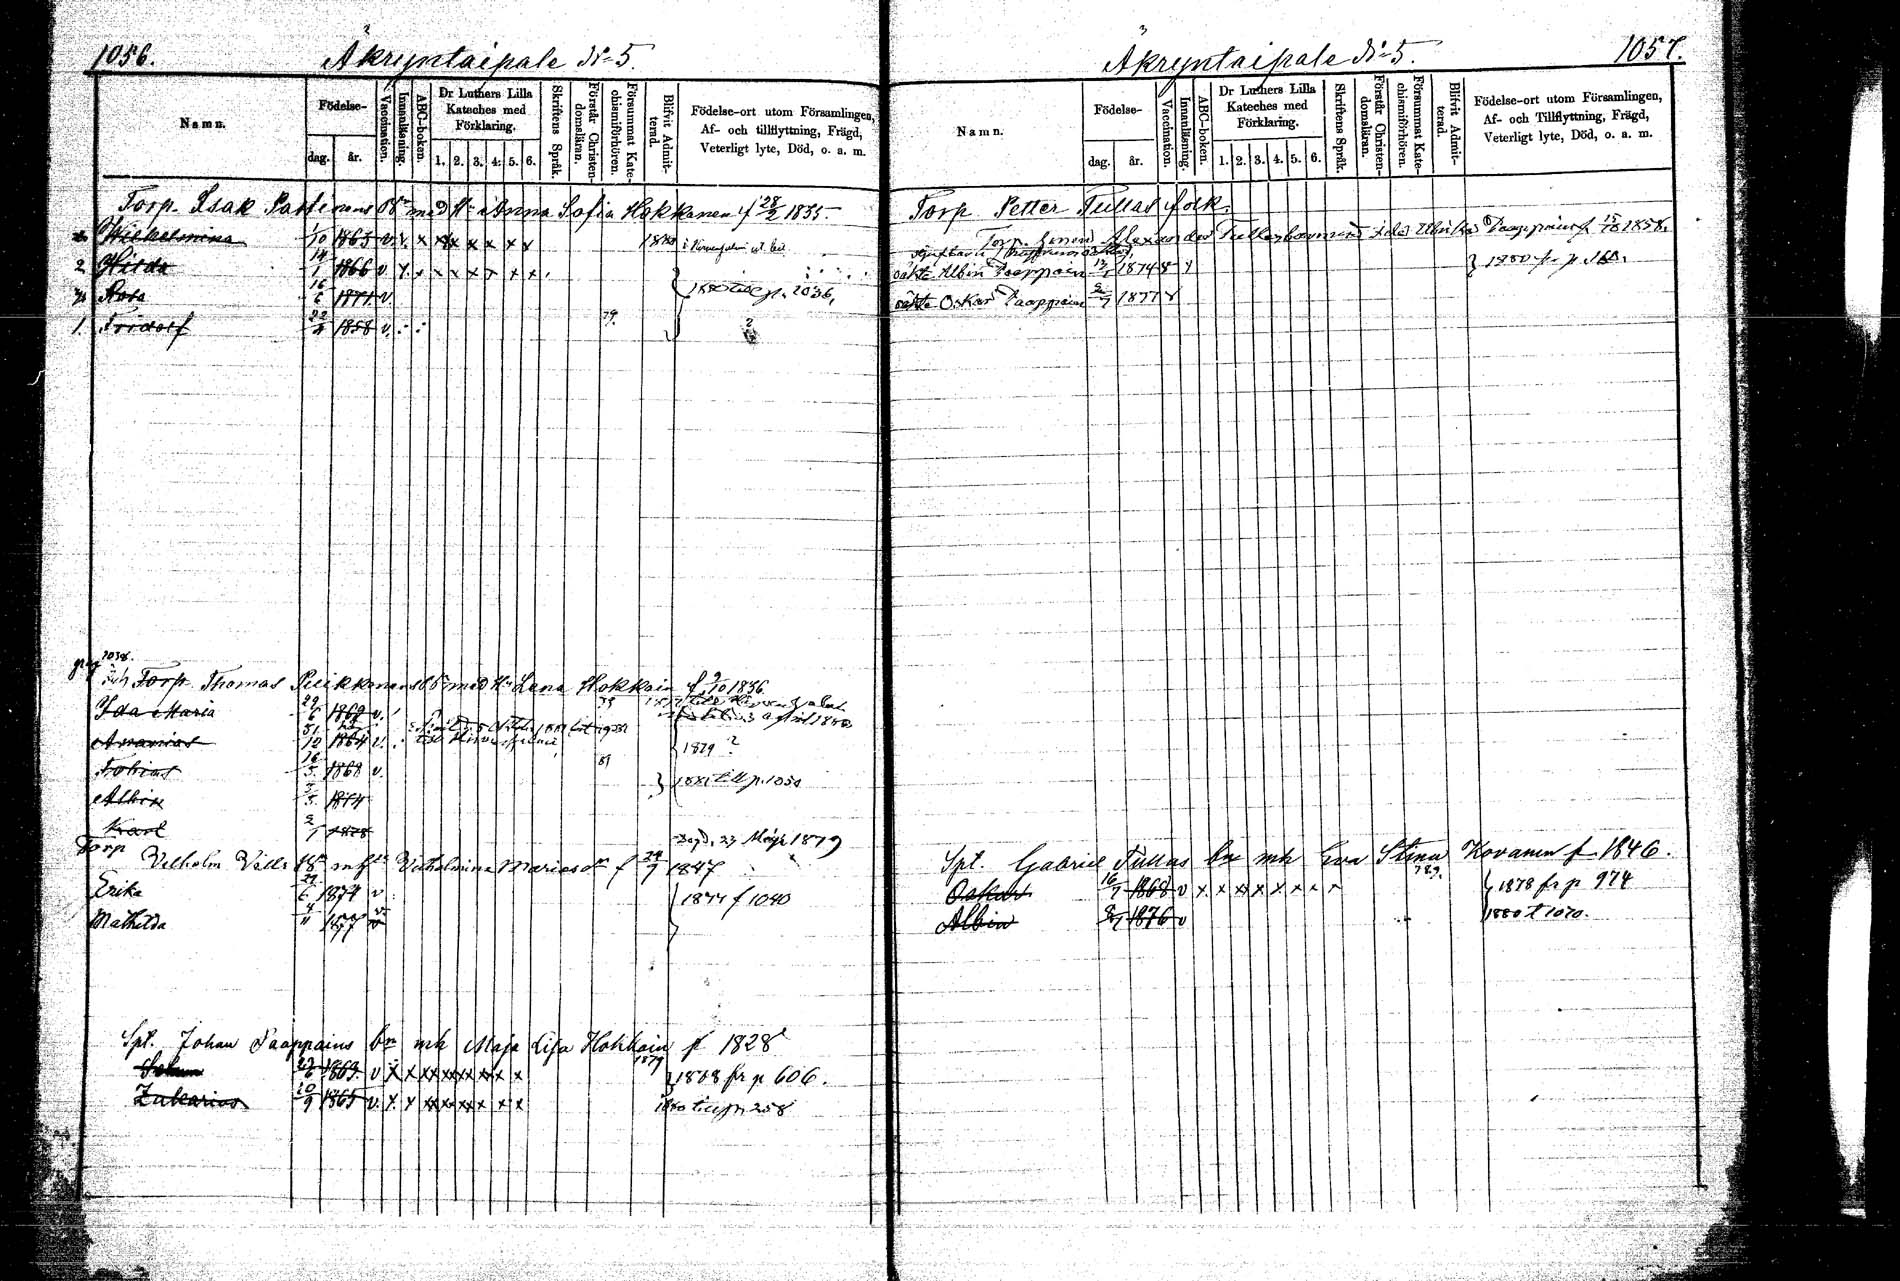 1056.
Äkryntaipale No 5.
Namn.
Födelse-
dag.
år.
Vaccination.
Innanläsning.
ABC-boken.
Dr Luthers Lilla
Kateches med
Förklaring.
1. 2. 3. 4. 5. 6.
Skriftens Språk.
Förstår Christen-
domsläran.
Försummat Kate-
chismiförhören.
Blifvit Admit-
terad.
Födelse-ort utom Församlingen,
Af- och tillflyttning, Frägd,
Veterligt lyte, Död, o. a. m.
Torp. Isak Bn med Hu Anna Sofia Hokkanen f 28/2 1835.
Wilhelmina 1/10 1863 v. x x x x x x x
2 Hilda 14/1 1866 v x x x x x x x
Rosa 16/6 1871 v.
1880 till p. 2036.
1. Fridolf 22/4 1858 v. 79.
2038.
Torp Thomas Puikkonens bn med Hu Lena Hokkain f 9/10 1836
Ida Maria 29/6 1862 v.
april 1880
Ananias 31/12 1864 v.
1879 ?
Tobias 16/5 1868 v. 81
1881 till p. 1050
Albin 3/5 1874
Karl 2/1 1878
Död. 23 Maji 1879
Torp
Vilhelm Välls bn m hu Vilhelmina Mariasdr f 24/9 1847
Erika 29/6 1874 v
1877 f 1040
Mathilda 4/11 1877 v
Spt. Johan Paappains bn mh Maja Lisa Hokkain f 1828
1879
1863. v x x x x x x x x
1878 fr p 606.
Zakarias 10/9 1865 v. x x x x x x x x
1880 till p 258
Äkryntaipale No 5.
1057.
Namn.
Födelse-
dag.
år.
Vaccination.
Innanläsning.
ABC-boken.
Dr Luthers Lilla
Kateches med
Förklaring.
1. 2. 3. 4. 5. 6.
Skriftens Språk.
Förstår Christen-
domsläran.
Försummat Kate-
chismiförhören.
Blifvit Admit-
terad.
Födelse-ort utom Församlingen,
Af- och Tillflyttning, Frägd,
Veterligt lyte, Död, o. a. m.
Torp Petter Tullas folk.
Torp. sonen Alexander Tullas barn med Ida Ulrika Paappain f 1858.
oäkta Albin Paappain 1874
1880 fr p.
oäkta Oskar Paappain 2/7 1877
Spt. Gabriel Tullas bn mh Eva Stina Kovanen f 1846.
789.
Oskar 16/7 1868 v x x x x x x x
1878 fr p 974
Albin 1876 v
1880 t 1070.